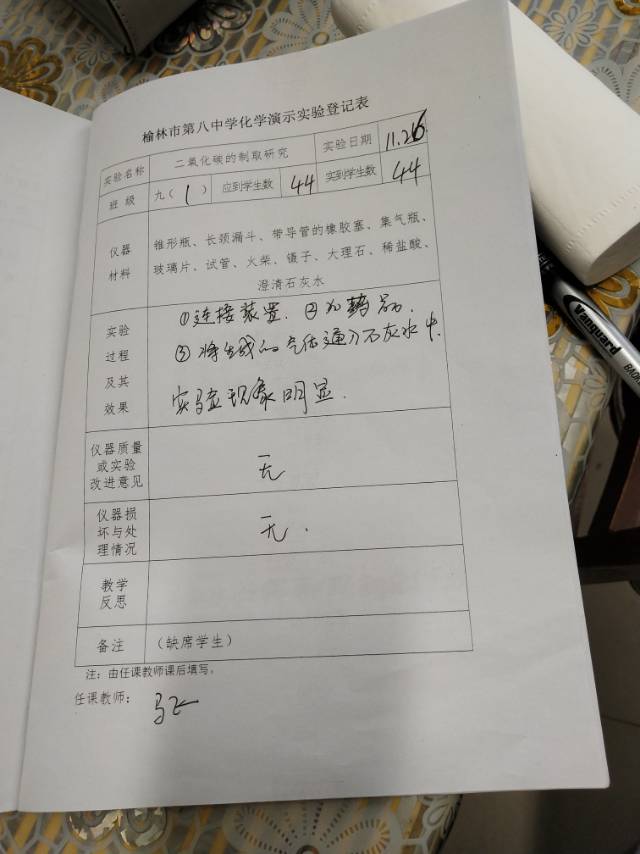 榆林市第八中学化学演示实验登记表
实验名称 二氧化碳的制取研究 实验日期 11.26
班 级 九(1) 应到学生数 44 实到学生数 44
仪器
材料
锥形瓶、长颈漏斗、带导管的橡胶塞、集气瓶、
玻璃片、试管、火柴、镊子、大理石、稀盐酸、
澄清石灰水
实验
过程
及其
效果
①连接装置. ②加药品.
③将生成的气体通入石灰水中.
实验现象明显.
仪器质量
或实验
改进意见
无
仪器损
坏与处
理情况
无.
教学
反思
备注 (缺席学生)
注：由任课教师课后填写。
任课教师：
Vanguard